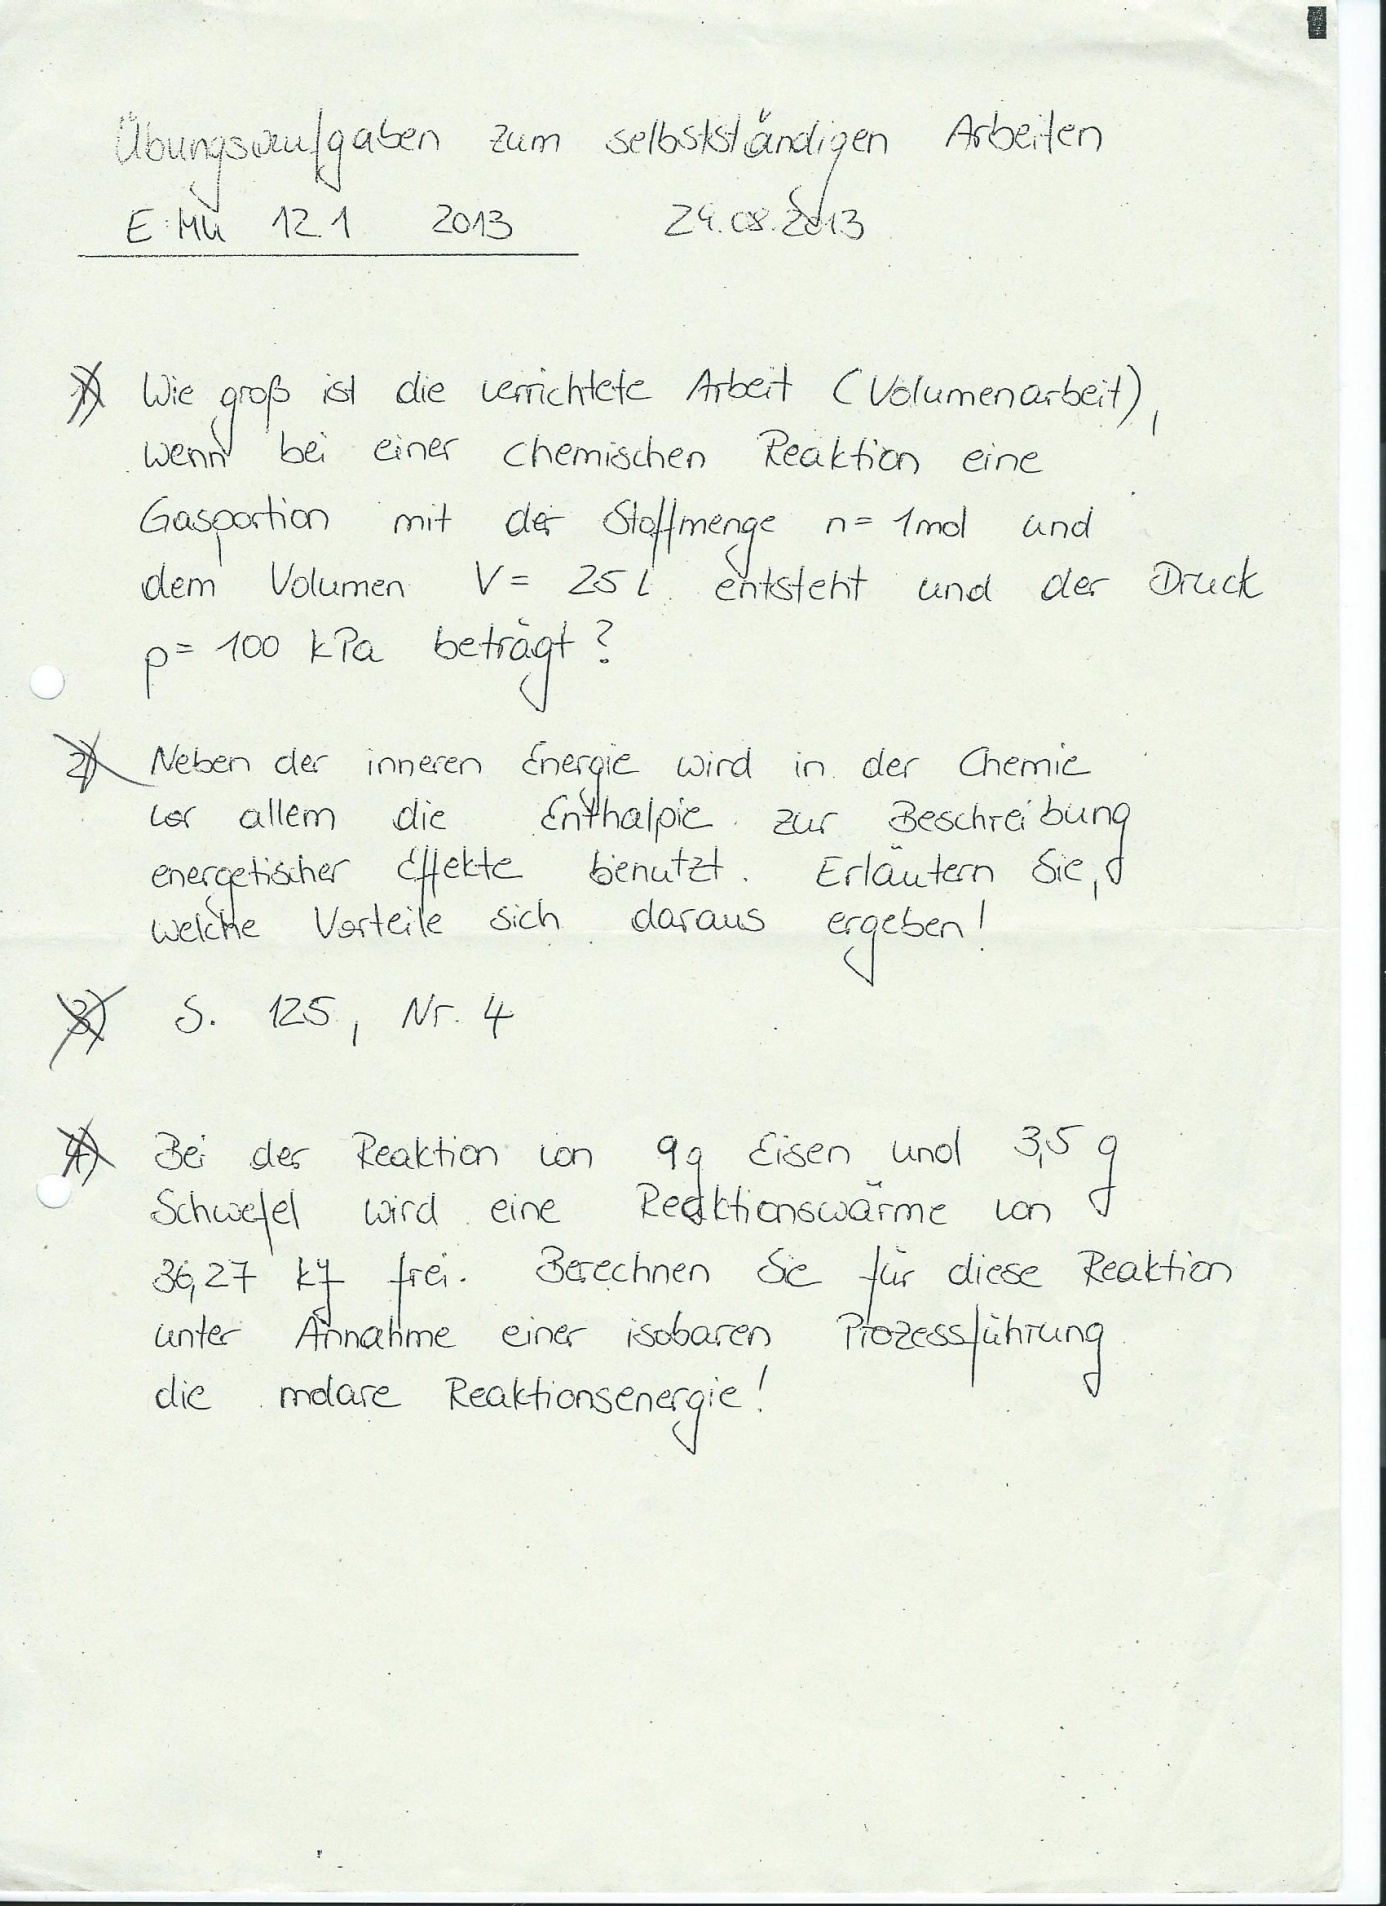 Übungsaufgaben zum selbstständigen Arbeiten
E Mü 12.1 2013 24.08.2013
1) Wie groß ist die verrichtete Arbeit (Volumenarbeit),
wenn bei einer chemischen Reaktion eine
Gasportion mit der Stoffmenge n = 1mol und
dem Volumen V = 25 l entsteht und der Druck
p = 100 kPa beträgt?
2) Neben der inneren Energie wird in der Chemie
vor allem die Enthalpie zur Beschreibung
energetischer Effekte benutzt. Erläutern Sie,
welche Vorteile sich daraus ergeben!
3) S. 125, Nr. 4
4) Bei der Reaktion von 9g Eisen und 3,5 g
Schwefel wird eine Reaktionswärme von
36,27 kJ frei. Berechnen Sie für diese Reaktion
unter Annahme einer isobaren Prozessführung
die molare Reaktionsenergie!